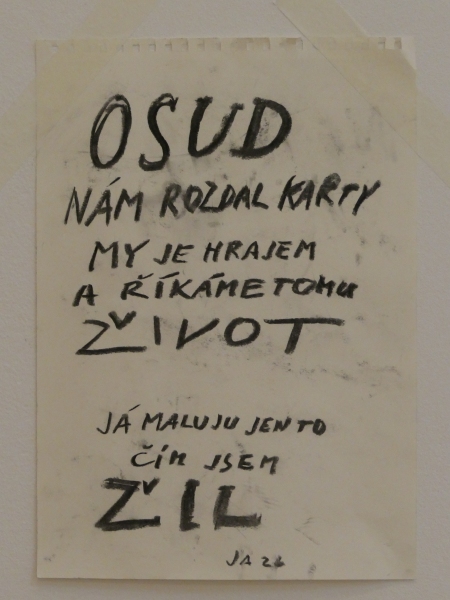 OSUD
NÁM ROZDAL KARTY
MY JE HRAJEM
A ŘÍKÁME TOMU
ŽIVOT
JÁ MALUJU JEN TO
ČÍM JSEM
ŽIL
JA 26